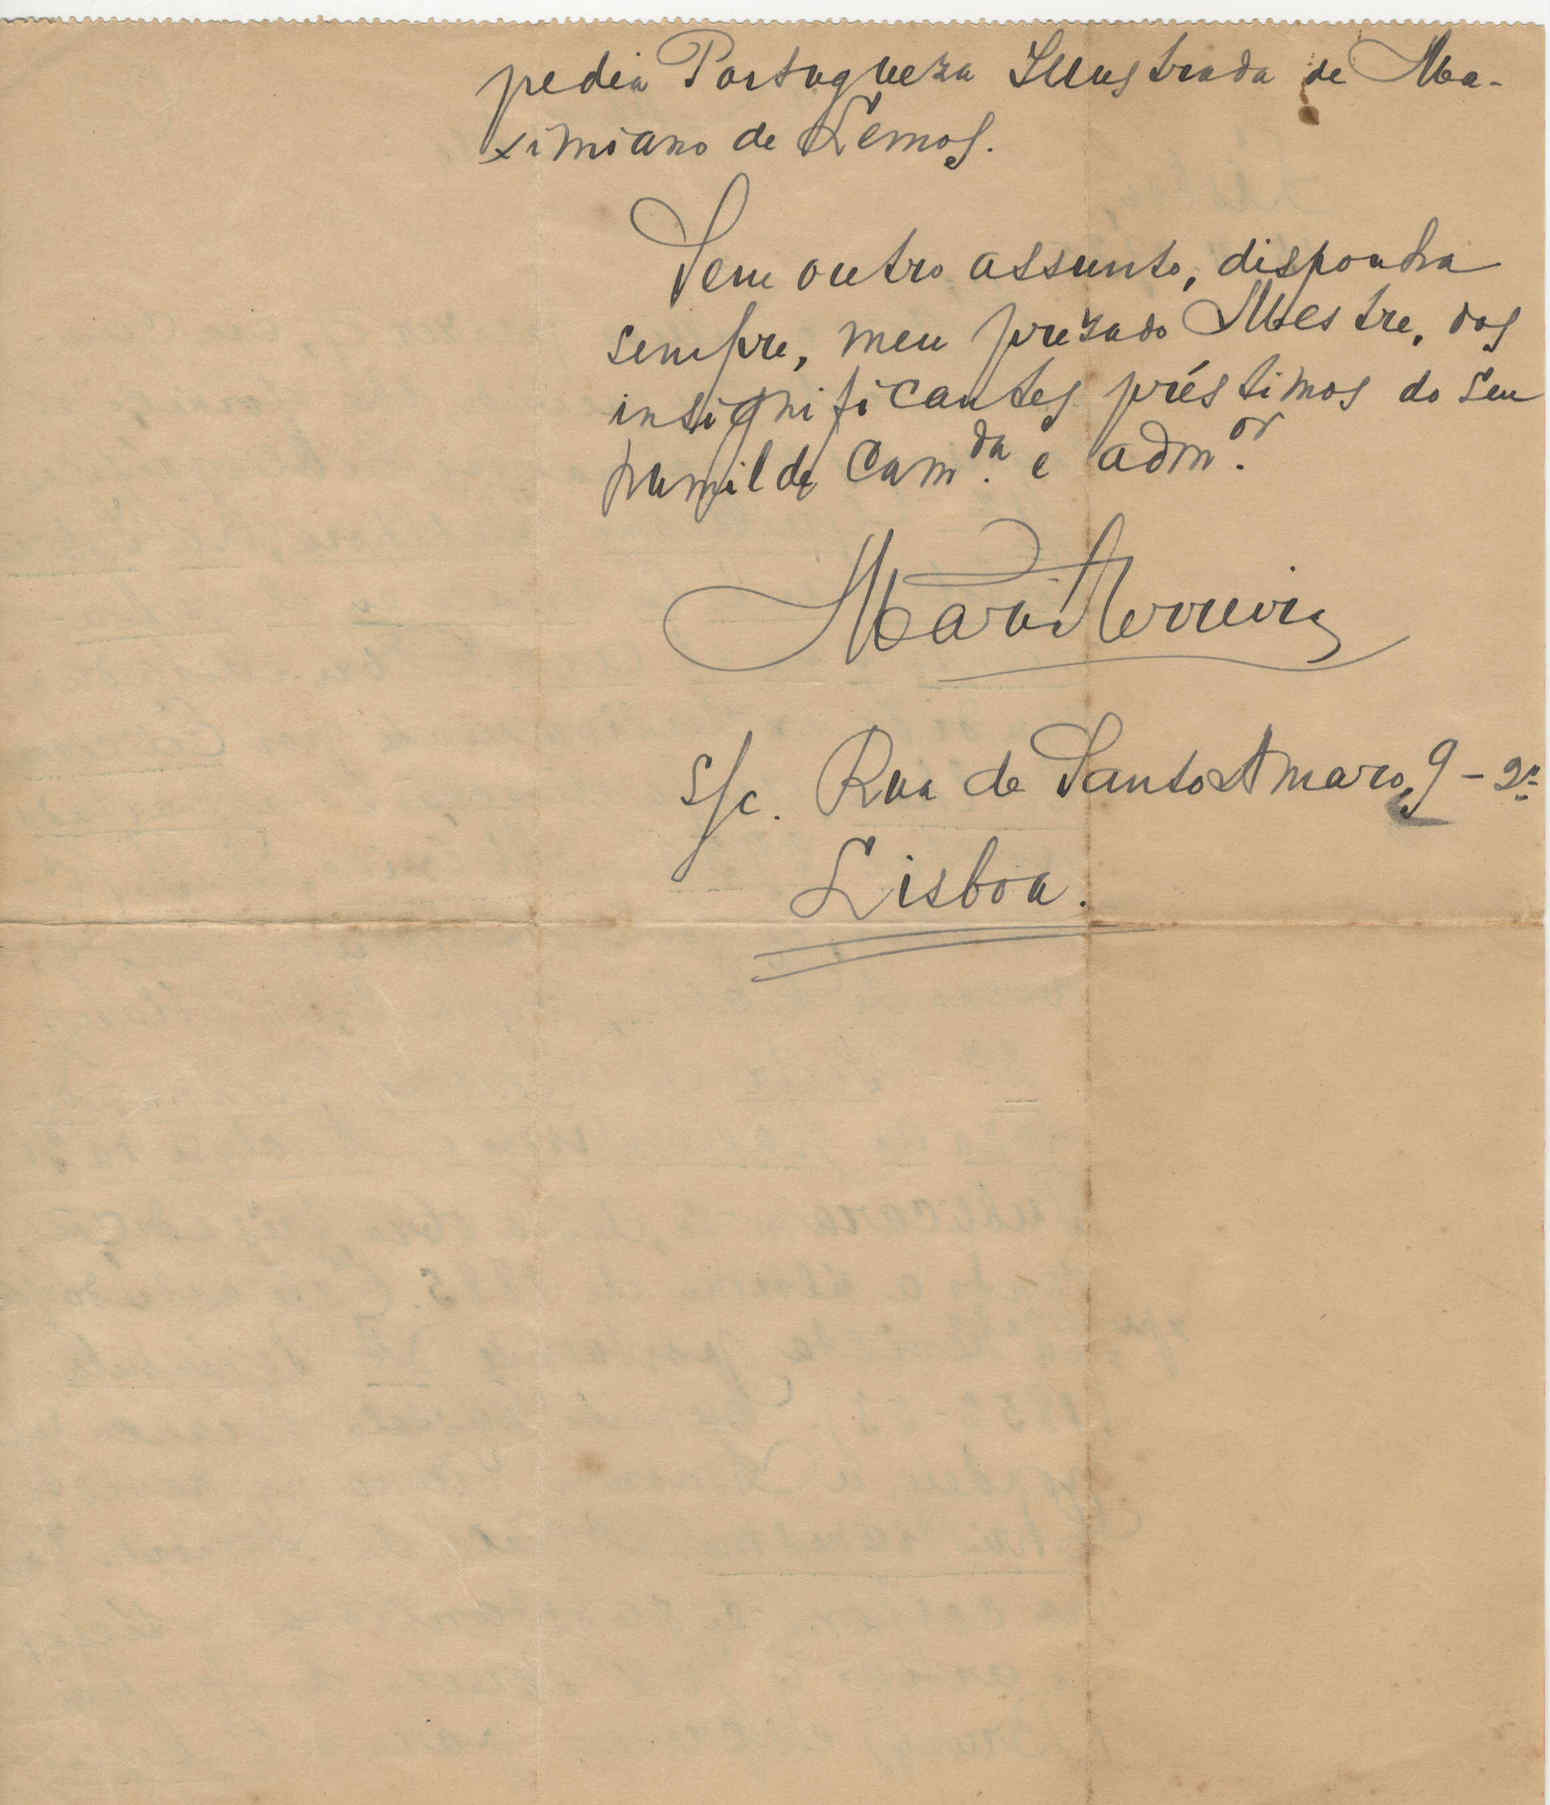 pedia Portugueza Illustrada de Ma-
ximiano de Lemos.
Sem outro assunto, disponha
sempre, meu prezado Mestre, dos
insignificantes préstimos do seu
humilde Cam.da e adm.or
Mario Ferreira
s/c. Rua de Santo Amaro, 9 - 2º
Lisboa.